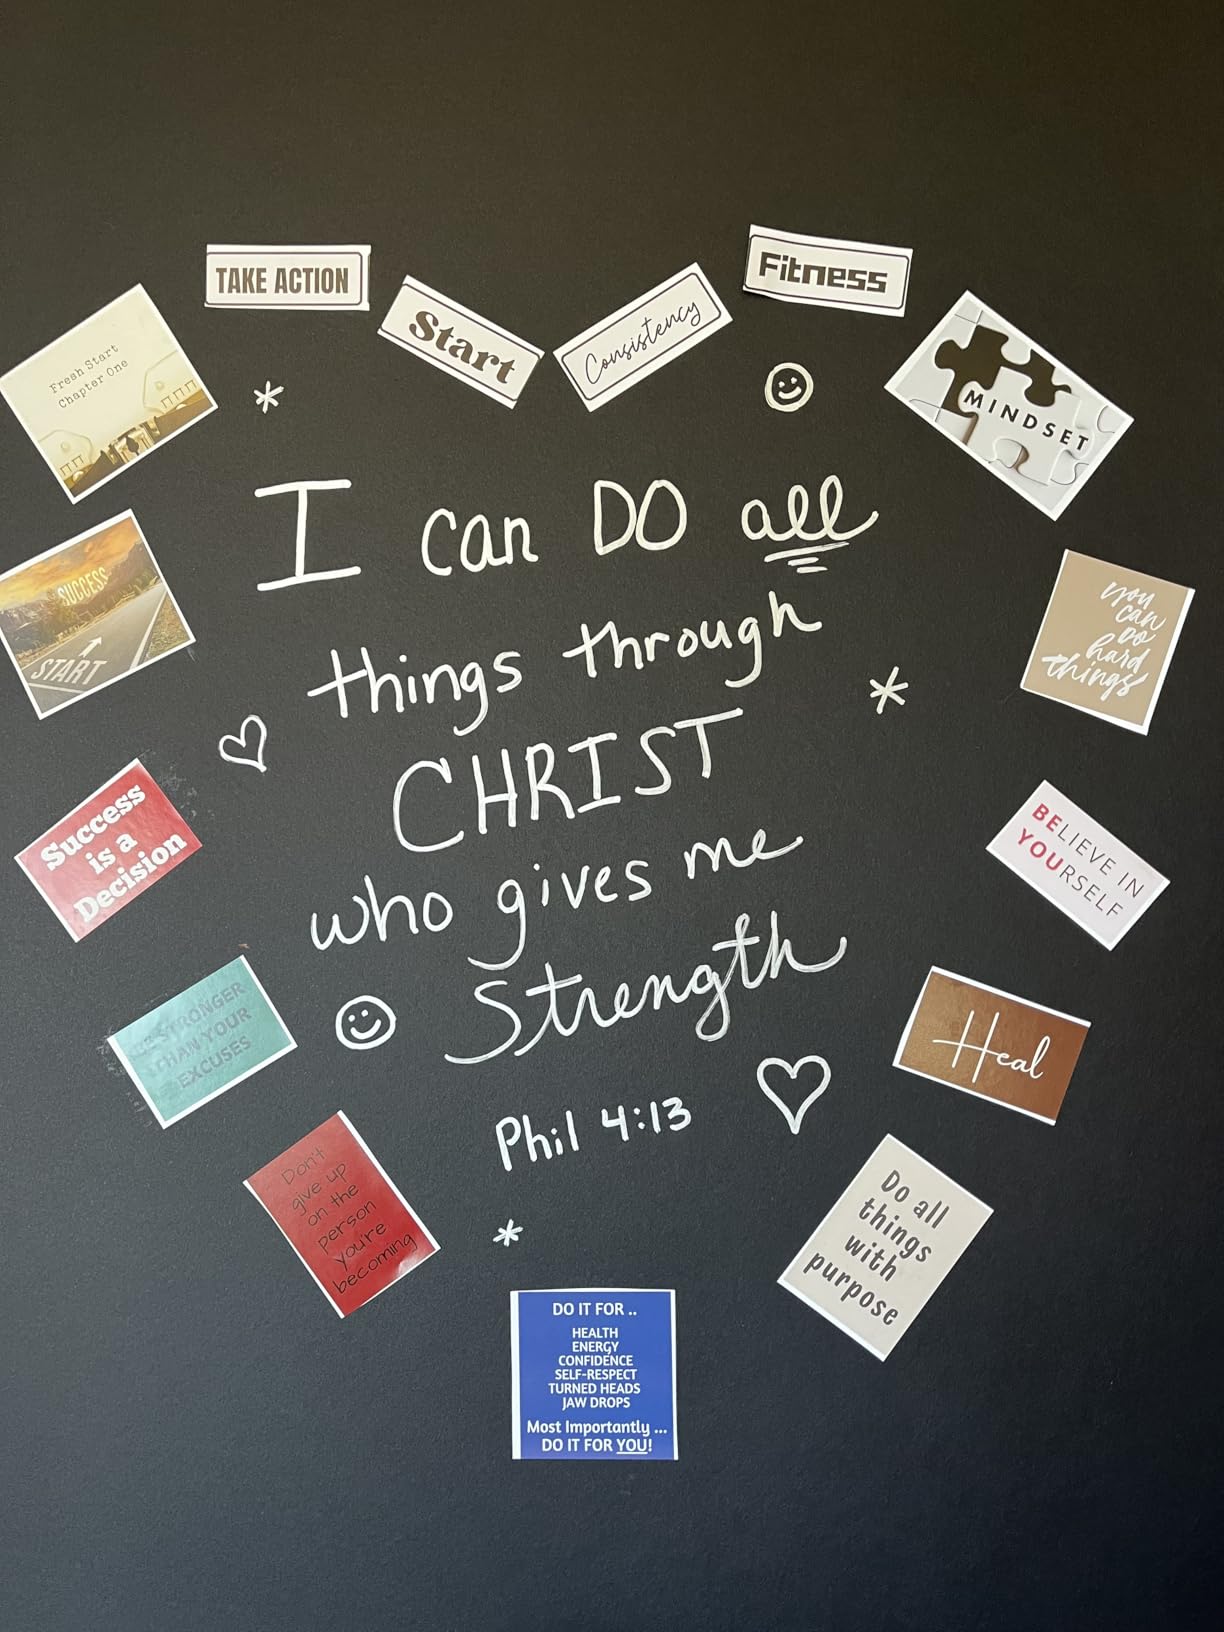 TAKE ACTION
Start
Consistency
Fitness
Fresh Start
Chapter One
MINDSET
SUCCESS
START
I can DO all
things through
CHRIST
who gives me
Strength
Phil 4:13
you
can
do
hard
things
Success
is a
Decision
BELIEVE IN
YOURSELF
BE STRONGER
THAN YOUR
EXCUSES
Heal
Don't
give up
on the
person
you're
becoming
Do all
things
with
purpose
DO IT FOR ..
HEALTH
ENERGY
CONFIDENCE
SELF-RESPECT
TURNED HEADS
JAW DROPS
Most Importantly ...
DO IT FOR YOU!